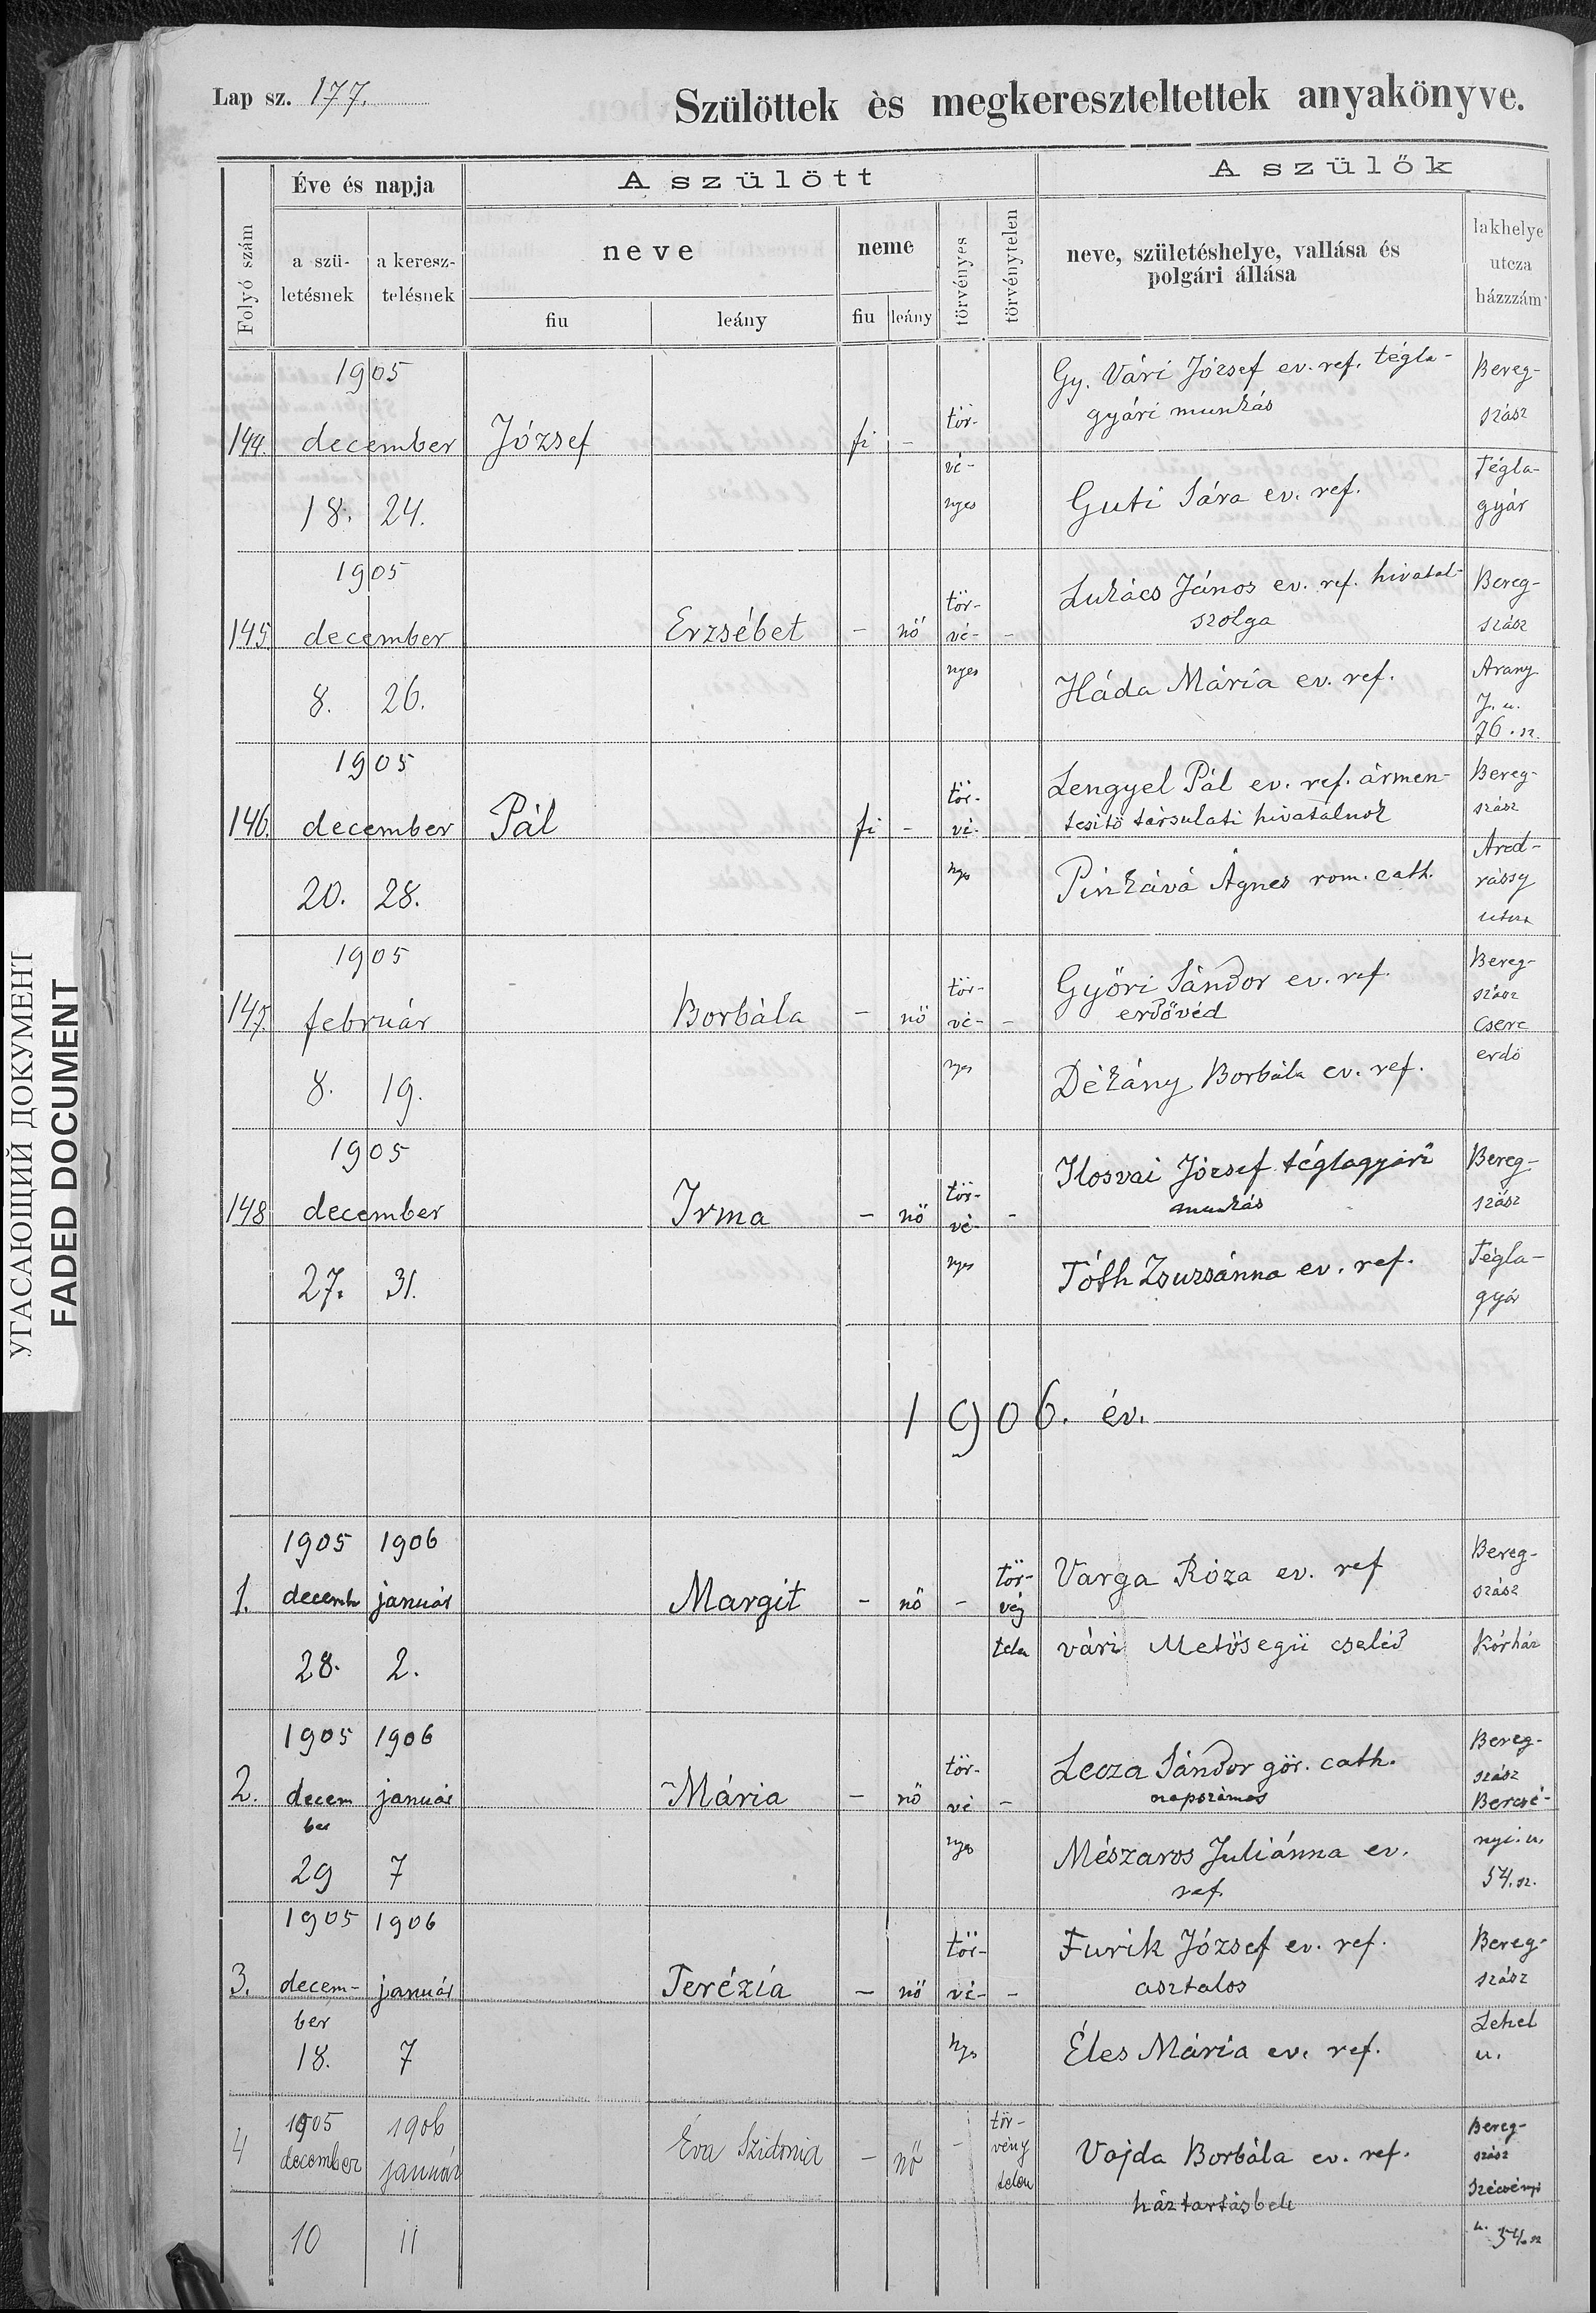 Lap sz. 177.
Szülöttek ès megkereszteltettek anyakönyve.
Folyó szám
Éve és napja
A szülött
A szülők
a szü-
letésnek
a keresz-
telésnek
neve
fiu
leány
neme
fiu
leány
törvényes
törvénytelen
neve, születéshelye, vallása és
polgári állása
lakhelye
utcza
házzzám
1905
144. december József fi -
18. 24.
tör-
vé-
nyes
Gy. Vári József ev. ref. tégla-
gyári munkás
Guti Sára ev. ref.
Bereg-
szász
Tégla-
gyár
1905
145. december Erzsébet - nő
8. 26.
tör-
vé- -
nyes
Lukács János ev. ref. hivatal-
szolga
Háda Mária ev. ref.
Bereg-
szász
Arany
J. u.
76. sz.
1905
146. december Pál fi -
20. 28.
tör-
vé-
nyes
Lengyel Pál ev. ref. ármen-
tesitő társulati hivatalnok
Pinkává Ágnes rom. cath.
Bereg-
szász
And-
rássy
utca
1905
147. február Borbála - nő
8. 19.
tör-
vé- -
nyes
Győri Sándor ev. ref.
erdővéd
Dékány Borbála ev. ref.
Bereg-
szász
Csere
erdő
1905
148 december Irma - nő
27. 31.
tör-
vé- -
nyes
Ilosvai József téglagyári
munkás
Tóth Zsuzsánna ev. ref.
Bereg-
szász
Tégla-
gyár
1906. év.
1905 1906
1. decemb január Margit - nő -
28. 2.
tör-
vég
telen
Varga Róza ev. ref
vári cseléd
Bereg-
szász
Kórház
1905 1906
2. decem január Mária - nő
ber
29 7
tör-
vé -
nyes
Lecza Sándor gör. cath.
napszámos
Mészaros Juliánna ev.
ref.
Bereg-
szász
Bercsé-
nyi. u.
54. sz.
1905 1906
3. decem- január Terézia - nő
ber
18. 7
tör-
vé- -
nyes
Furik József ev. ref.
asztalos
Éles Mária ev. ref.
Bereg-
szász
Lehel
u.
1905 1906
4 december január Éva Szidonia - nő -
10 11
tör-
vény
telen
Vajda Borbála ev. ref.
háztartásbeli
Bereg-
szász
Szécsényi
u. 54. sz
УГАСАЮЩИЙ ДОКУМЕНТ
FADED DOCUMENT